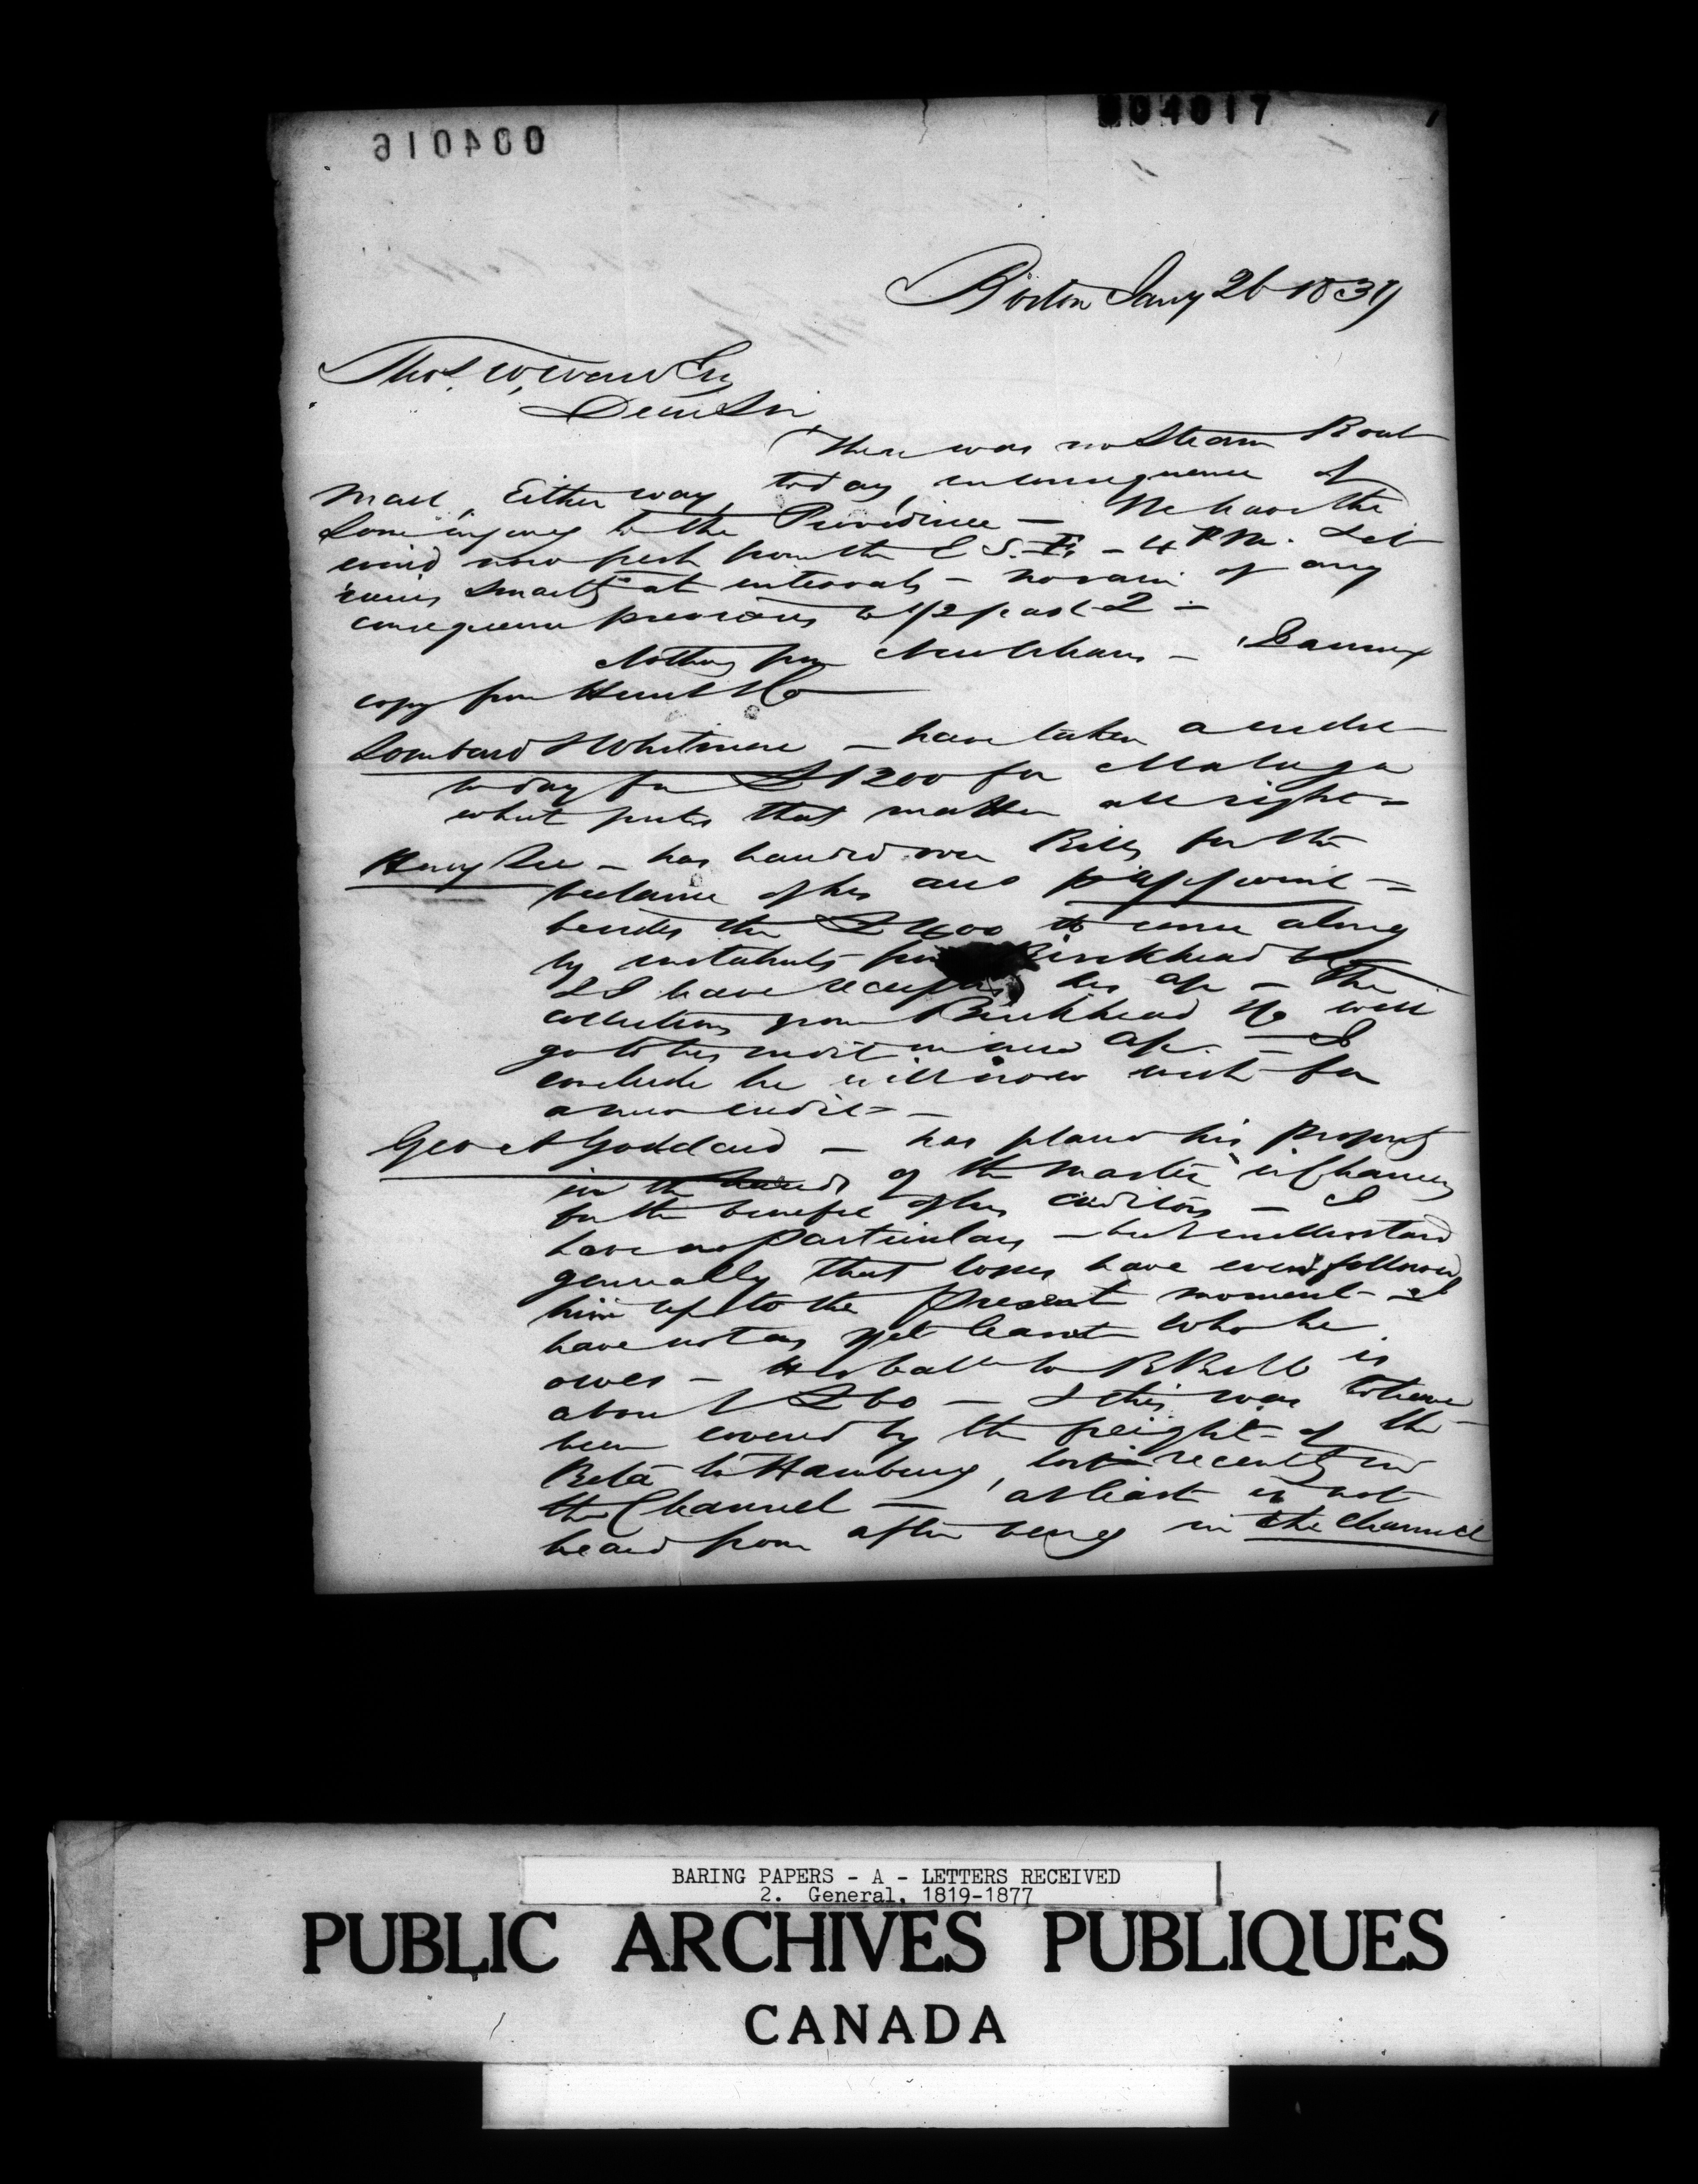 004016
004017
Boston Jany 26 1839
Thos. W. Ward Esq
Dear Sir
There was no Steam Boat
Mail, Either way, today, in consequence of
Some injury to the Providence — We have the
wind now fresh from the E S. E. — 4 P.M. &
rains smartly at intervals — no rain of any
consequence previous to 1/2 past 2 —
Nothing from New Orleans — I annex
copy from Hunt & Co
Lombard & Whitmore — have taken a credit
today for £1200 for Malaga
what puts that matter all right —
Henry Lee — has handed over Bills for the
balance of his
besides the £400 to come along
by from Birckhead & Co
& I have his a/c — The
collections from Birckhead & Co will
go to his credit in new a/c. — I
conclude he will now wish for
a new credit —
Geo A Goddard — has placed his property
in the hands of the Master in Chancery
for the benefit of his creditors — I
have no particulars — but understand
generally that losses have even followed
him up to the present moment — I
have not as yet learnt who he
owes — His balce to B B & Co is
about £60 — & this was to have
been covered by the freight of the
Beta to Hamburg, lost recently in
the Channel — at least is not
heard from after being in the Channel
BARING PAPERS - A - LETTERS RECEIVED
2. General, 1819-1877
PUBLIC ARCHIVES PUBLIQUES
CANADA